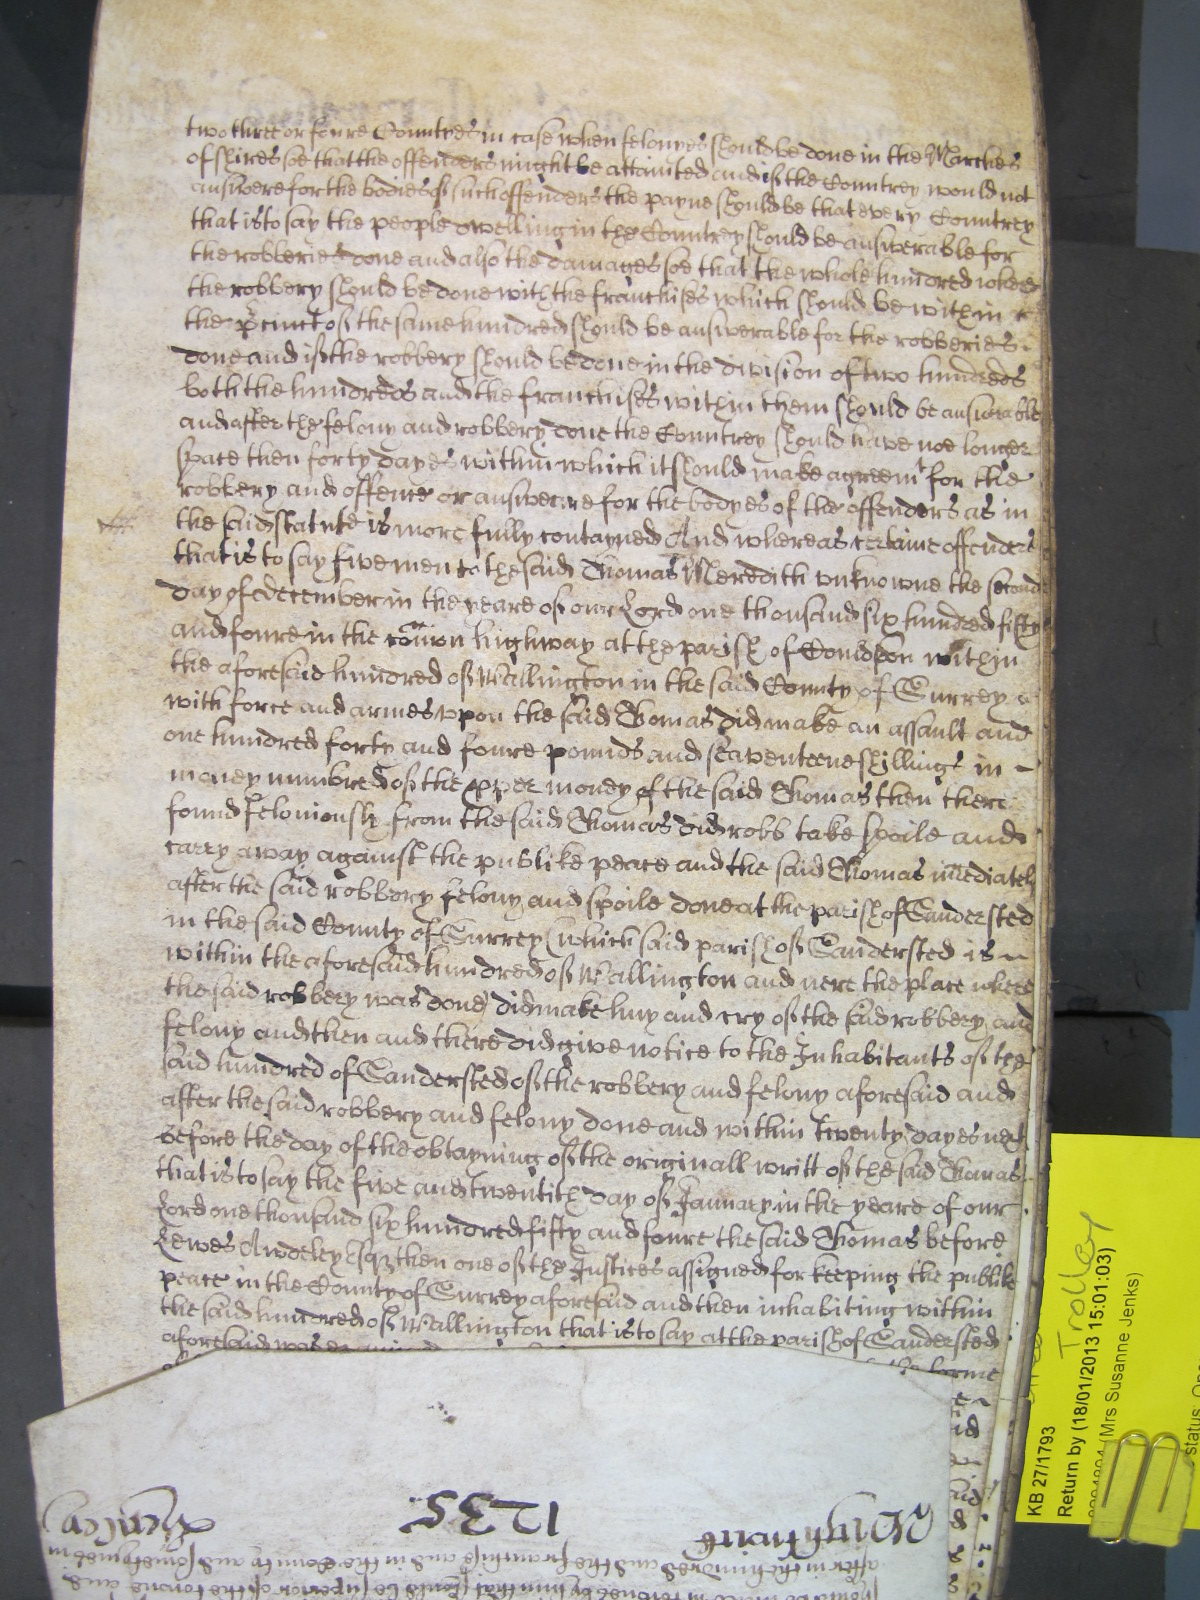 two three or foure Countyes in case when felonyes should be done in the Marches
of shires soe that the offenders might be attainted and if the Countrey would not
answere for the bodies of such offenders the payne should be that every Countrey
that is to say the people dwelling in the Countrey should be answerable for
the robberies done and also the damages soe that the whole hundred where
the robbery should be done with the franchises which should be within
the precinct of the same hundred should be answerable for the robberies
done and if the robbery should be done in the division of two hundreds
both the hundreds and the franchises within them should be answerable
and after the felony and robbery done the Countrey should have noe longer
space then forty dayes within which it should make agreemt for the
robbery and offence or answere for the bodyes of the offenders as in
the said statute is more fully contayned And whereas certaine offenders
that is to say five men to the said Thomas Meredith unknowne the second
day of december in the yeare of our Lord one thousand six hundred fifty
and foure in the comon highway at the parish of Couldson within
the aforesaid hundred of Wallington in the said County of Surrey
with force and armes upon the said Thomas did make an assault and
one hundred forty and foure pounds and seaventeene shillings in
money numbred of the pper money of the said Thomas then there
found feloniously from the said Thomas did robb take spoile and
carry away against the publike peace and the said Thomas imediately
after the said robbery felony and spoile done at the parish of Sandersted
in the said County of Surrey (which said parish of Sandersted is
within the aforesaid hundred of Wallington and nere the place where
the said robbery was done) did make huy and cry of the said robbery and
felony and then and there did give notice to the Inhabitants of the
said hundred of Sandersted of the robbery and felony aforesaid and
after the said robbery and felony done and within twenty dayes next
before the day of the obtayning of the originall writt of the said Thomas
that is to say the five and twentith day of January in the yeare of our
Lord one thousand six hundred fifty and foure the said Thomas before
Lewes Awdeley Esqr then one of the Justices assigned for keeping the publike
peace in the County of Surrey aforesaid and then inhabiting within
the said hundred of Wallington that is to say at the parish of Sandersted
aforesaid was
the forme
1235
KB 27/1793
Trolley
Return by (18/01/2013 15:01:03)
(Mrs Susanne Jenks)
status: